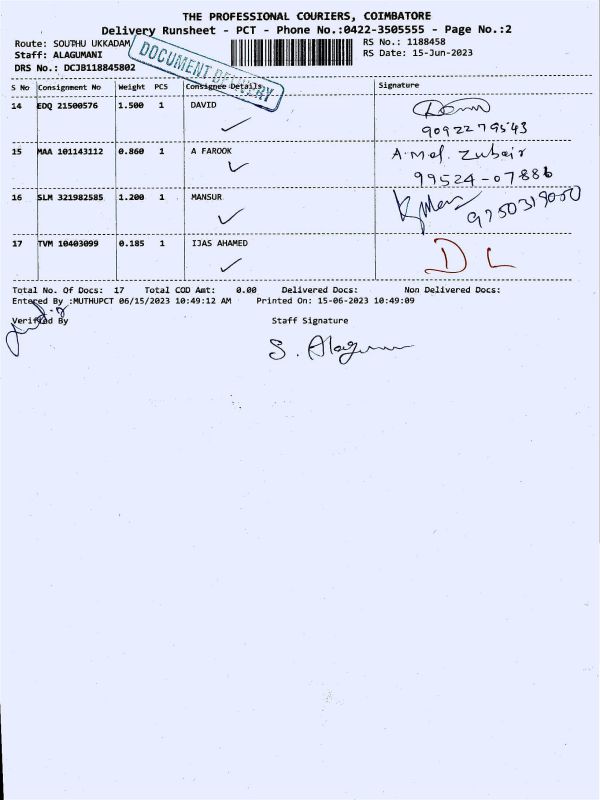 THE PROFESSIONAL COURIERS, COIMBATORE
Delivery Runsheet - PCT - Phone No.:0422-3505555 - Page No.:2
Route: SOUTHU UKKADAM RS No.: 1188458
Staff: ALAGUMANI RS Date: 15-Jun-2023
DRS No.: DCJB118845802
DOCUMENT DELIVERY
S No Consignment No Weight PCS Consignee Details Signature
14 EDQ 21500576 1.500 1 DAVID
9092279543
15 MAA 101143112 0.860 1 A FAROOK A. Md. Zubair
99524-07886
16 SLM 321982585 1.200 1 MANSUR 9750319050
17 TVM 10403099 0.185 1 IJAS AHAMED D L
Total No. Of Docs: 17 Total COD Amt: 0.00 Delivered Docs: Non Delivered Docs:
Entered By :MUTHUPCT 06/15/2023 10:49:12 AM Printed On: 15-06-2023 10:49:09
Verified By Staff Signature
S. Alagumani